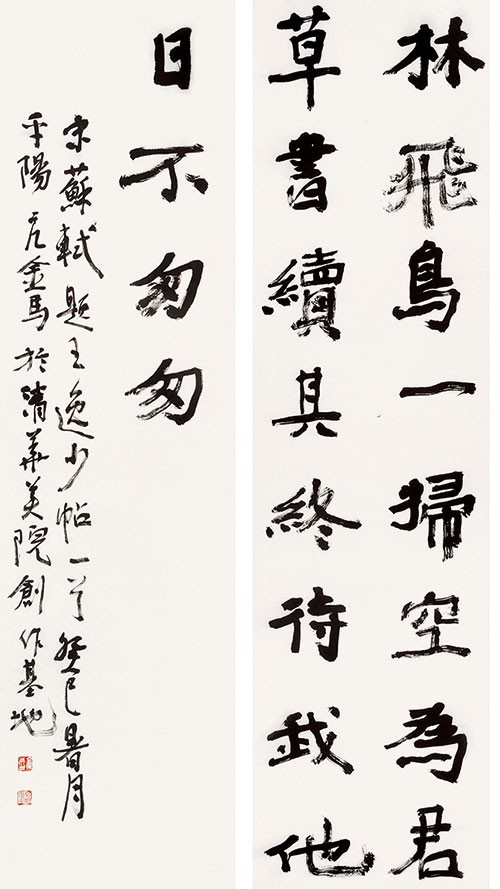 林飛鳥一掃空為君
草書續其終待我他
日不匆匆
宋蘇軾題王逸少帖一首癸巳暑月
平陽亢金馬於清華美院創作基地